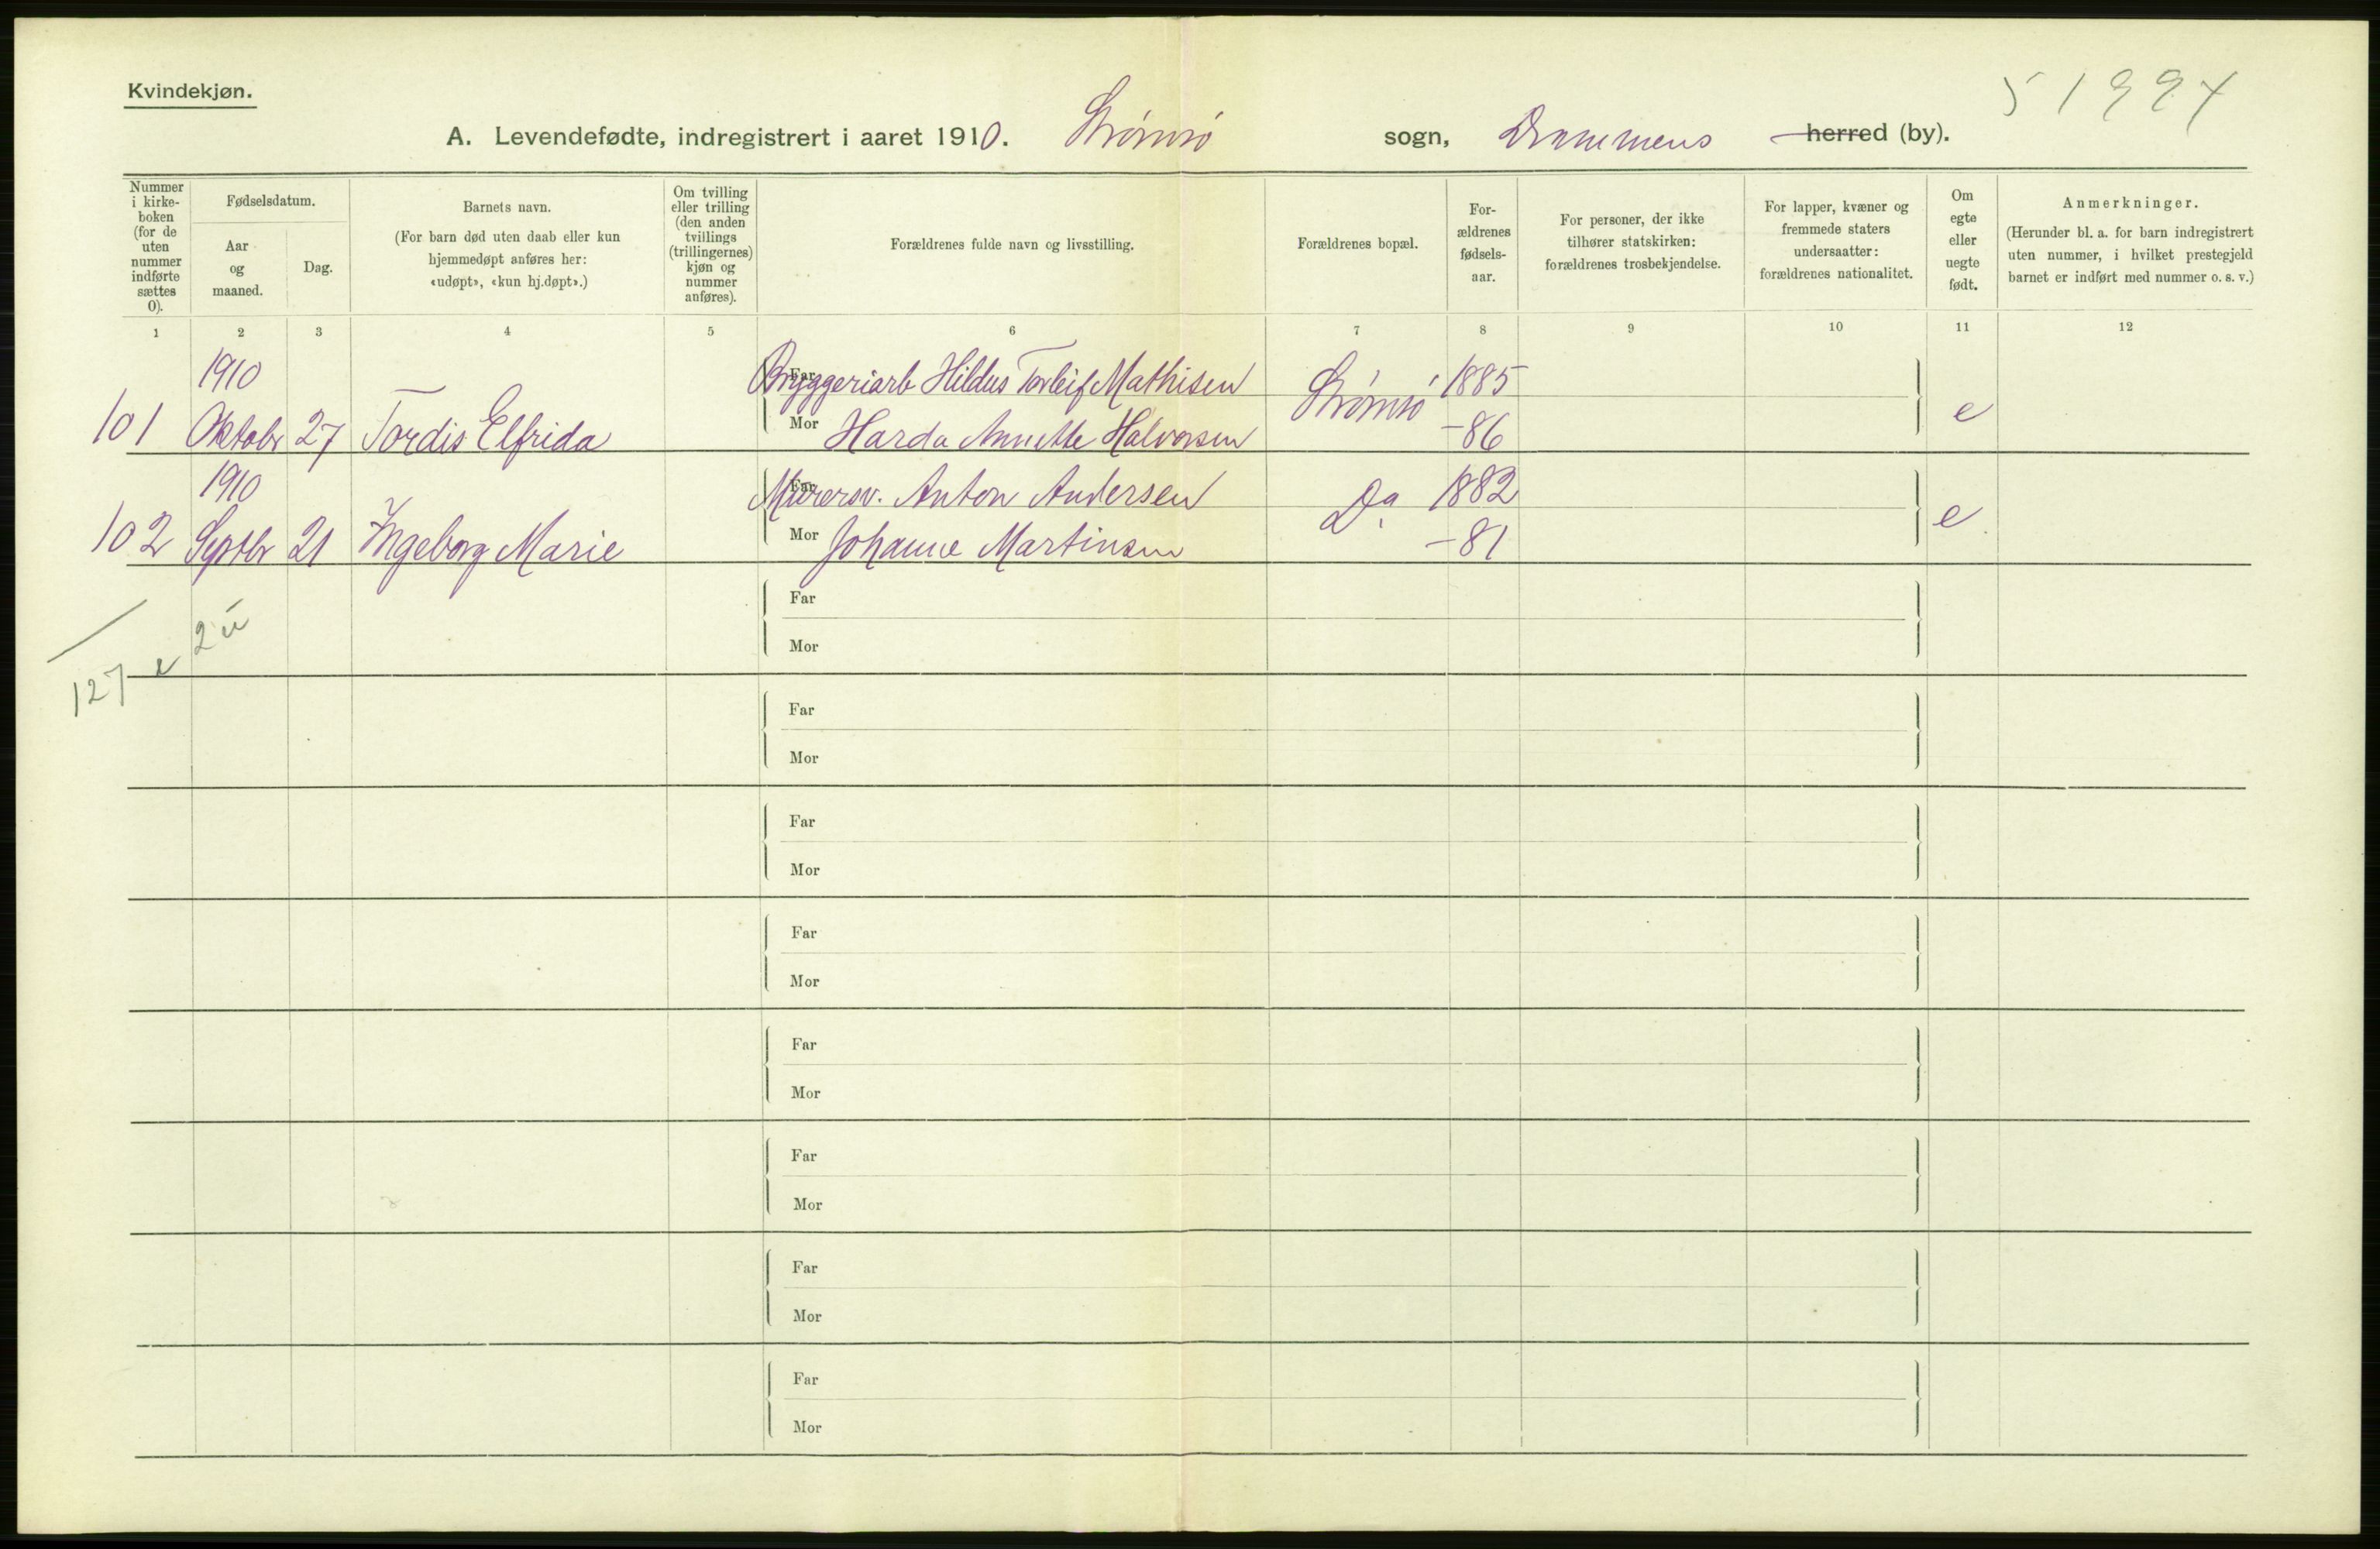 Kvindekjøn.
51997
A. Levendefødte, indregistrert i aaret 1910. Strømsø sogn, Drammens herred (by).
Nummer i kirke- boken (for de uten nummer indførte sættes 0).
Fødselsdatum.
Aar og maaned.
Dag.
Barnets navn.
(For barn død uten daab eller kun hjemmedøpt anføres her: «udøpt», «kun hj.døpt».)
Om tvilling eller trilling (den anden tvillings (trillingernes) kjøn og nummer anføres).
Forældrenes fulde navn og livsstilling.
Forældrenes bopæl.
For- ældrenes fødsels- aar.
For personer, der ikke tilhører statskirken: forældrenes trosbekjendelse.
For lapper, kvæner og fremmede staters undersaatter: forældrenes nationalitet.
Om egte eller uegte født.
Anmerkninger.
(Herunder bl. a. for barn indregistrert uten nummer, i hvilket prestegjeld barnet er indført med nummer o. s. v.)
1 2 3 4 5 6 7 8 9 10 11 12
1910 Far Bryggeriarb Hildus Torleif Mathisen Strømsø 1885
101 Oktobr 27 Tordis Elfrida Mor Harda Annette Halvorsen -86 e
1910 Far Murersv. Anton Andersen Do 1882
102 Septbr 21 Ingeborg Marie Mor Johanne Martinsen -81 e
Far
Mor
127 e 2 u
Far
Mor
Far
Mor
Far
Mor
Far
Mor
Far
Mor
Far
Mor
Far
Mor